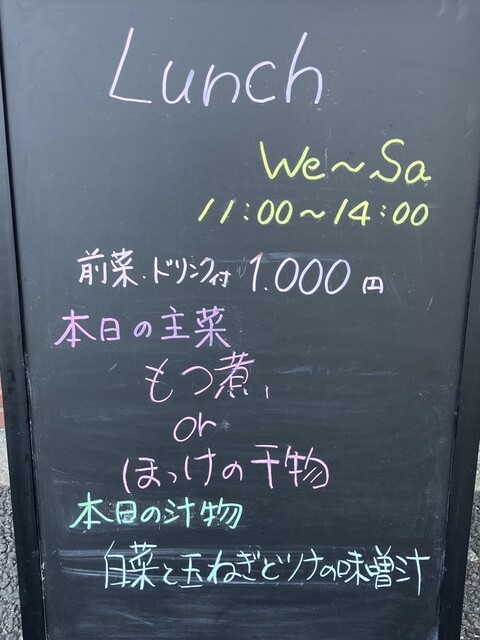 Lunch
We～Sa
11:00～14:00
前菜.ドリンク付 1.000円
本日の主菜
もつ煮
or
ほっけの干物
本日の汁物
白菜と玉ねぎとツナの味噌汁